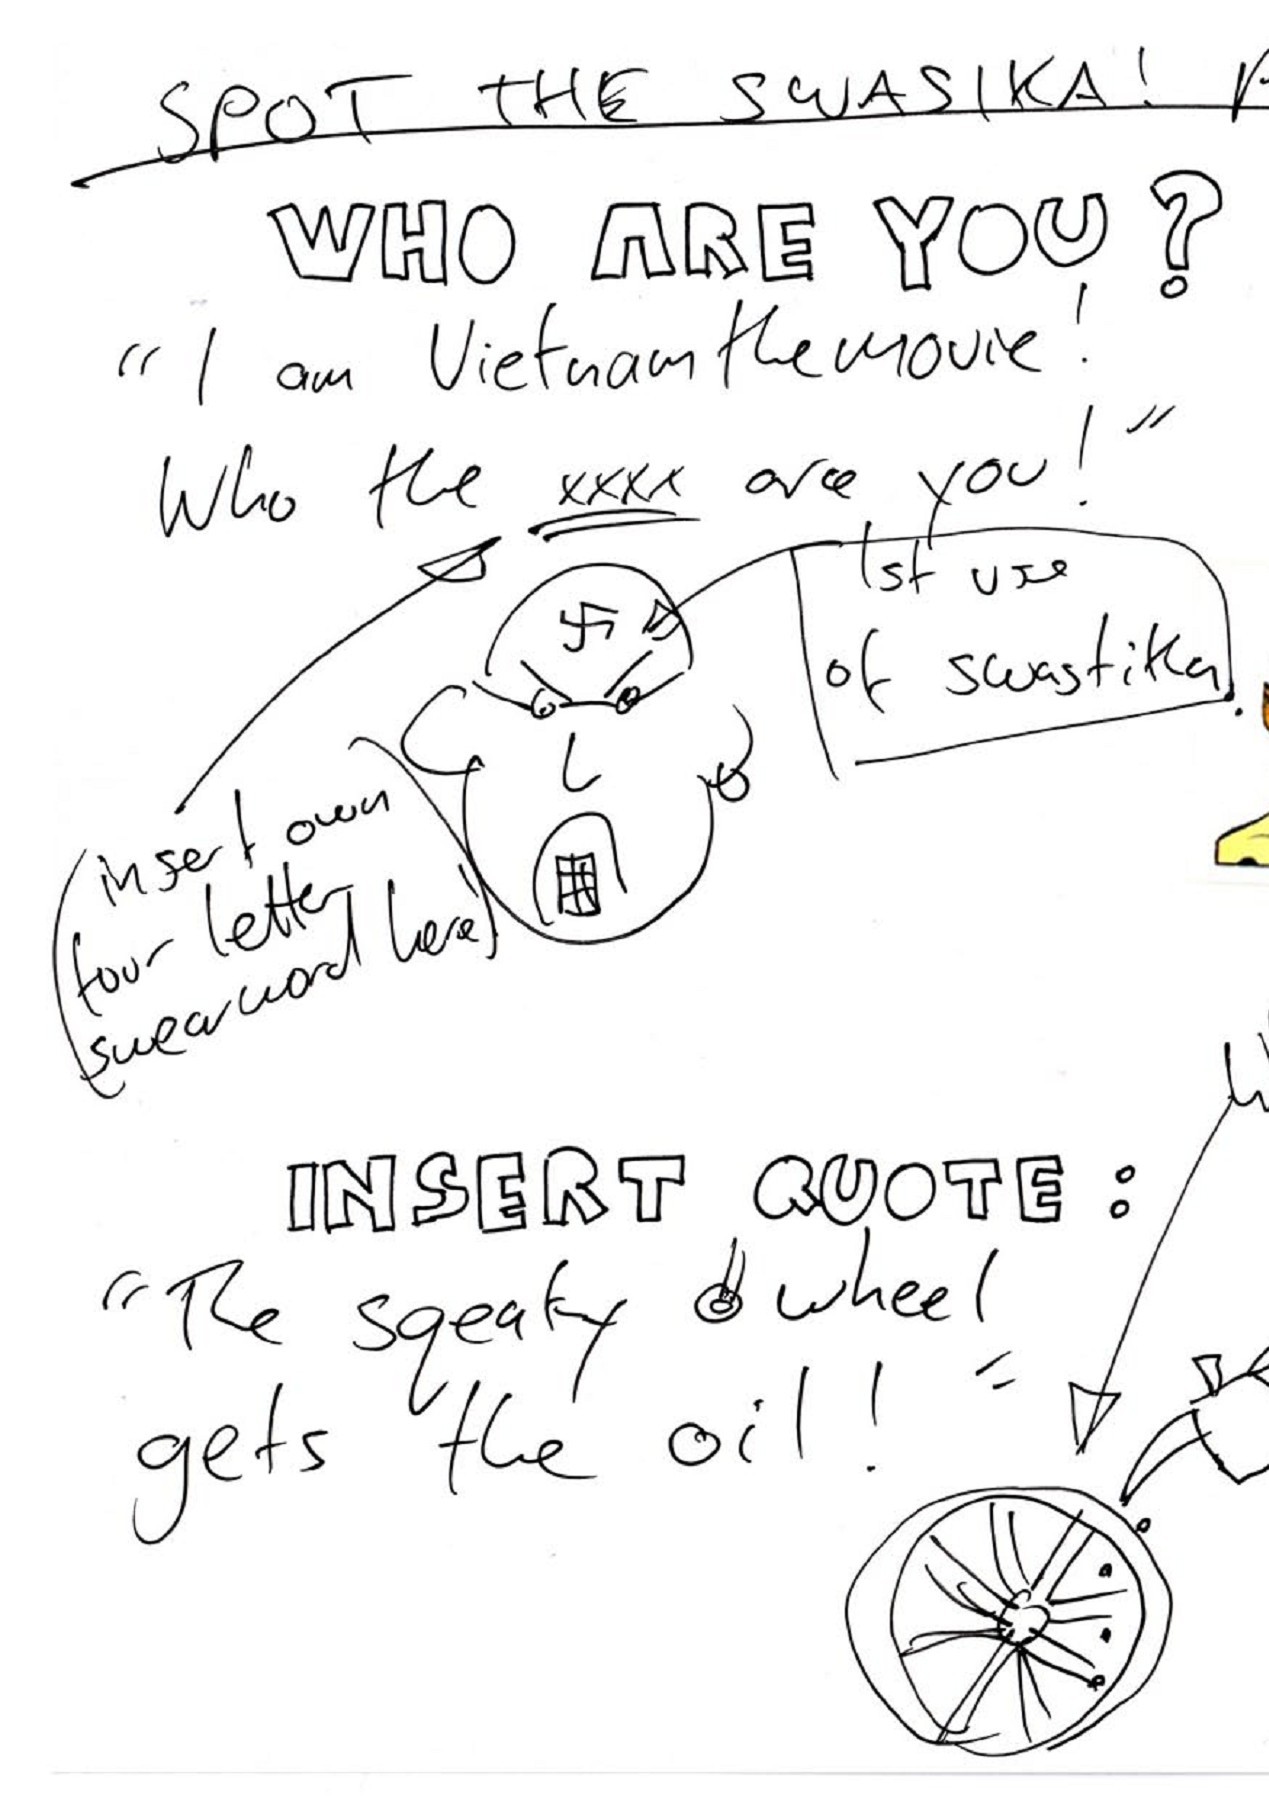 SPOT THE SWASIKA!
WHO ARE YOU?
"I am Vietnam the movie!
Who the xxxx are you!"
1st use
of swastika
(insert own
four letter
swearword here)
INSERT QUOTE:
"The sqeaky wheel
gets the oil!"